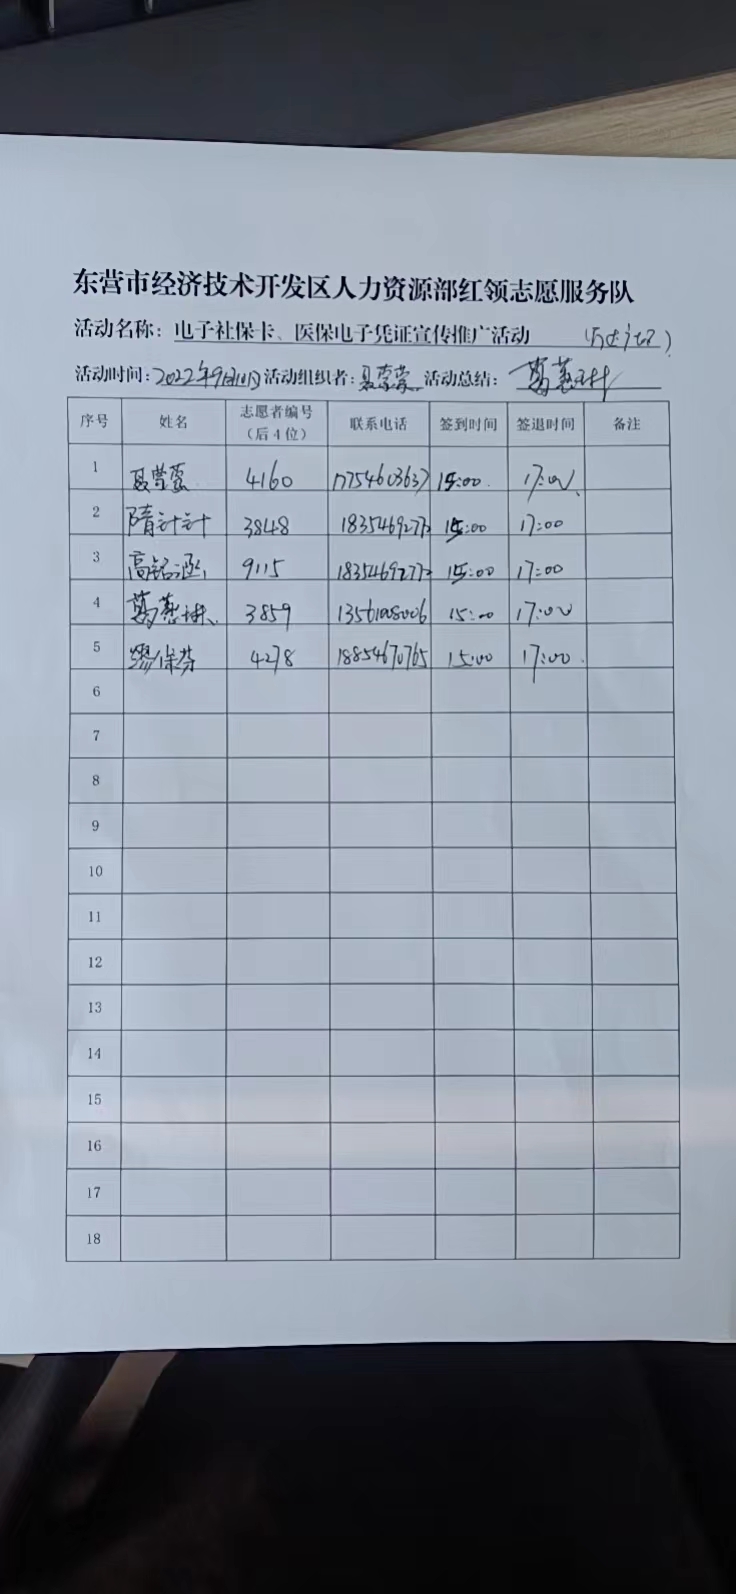 东营市经济技术开发区人力资源部红领志愿服务队
活动名称：电子社保卡、医保电子凭证宣传推广活动
活动时间：2022年9月 活动组织者：聂蒙蒙 活动总结：葛慧琳
序号 姓名 志愿者编号（后4位） 联系电话 签到时间 签退时间 备注
1 聂蒙蒙 4160 17754603637 15:00 17:00
2 隋计计 3848 18354692772 15:00 17:00
3 高铭涵 9115 18354692772 15:00 17:00
4 葛慧琳 3859 13561008006 15:00 17:00
5 缪保芬 4278 18854670765 15:00 17:00
6
7
8
9
10
11
12
13
14
15
16
17
18